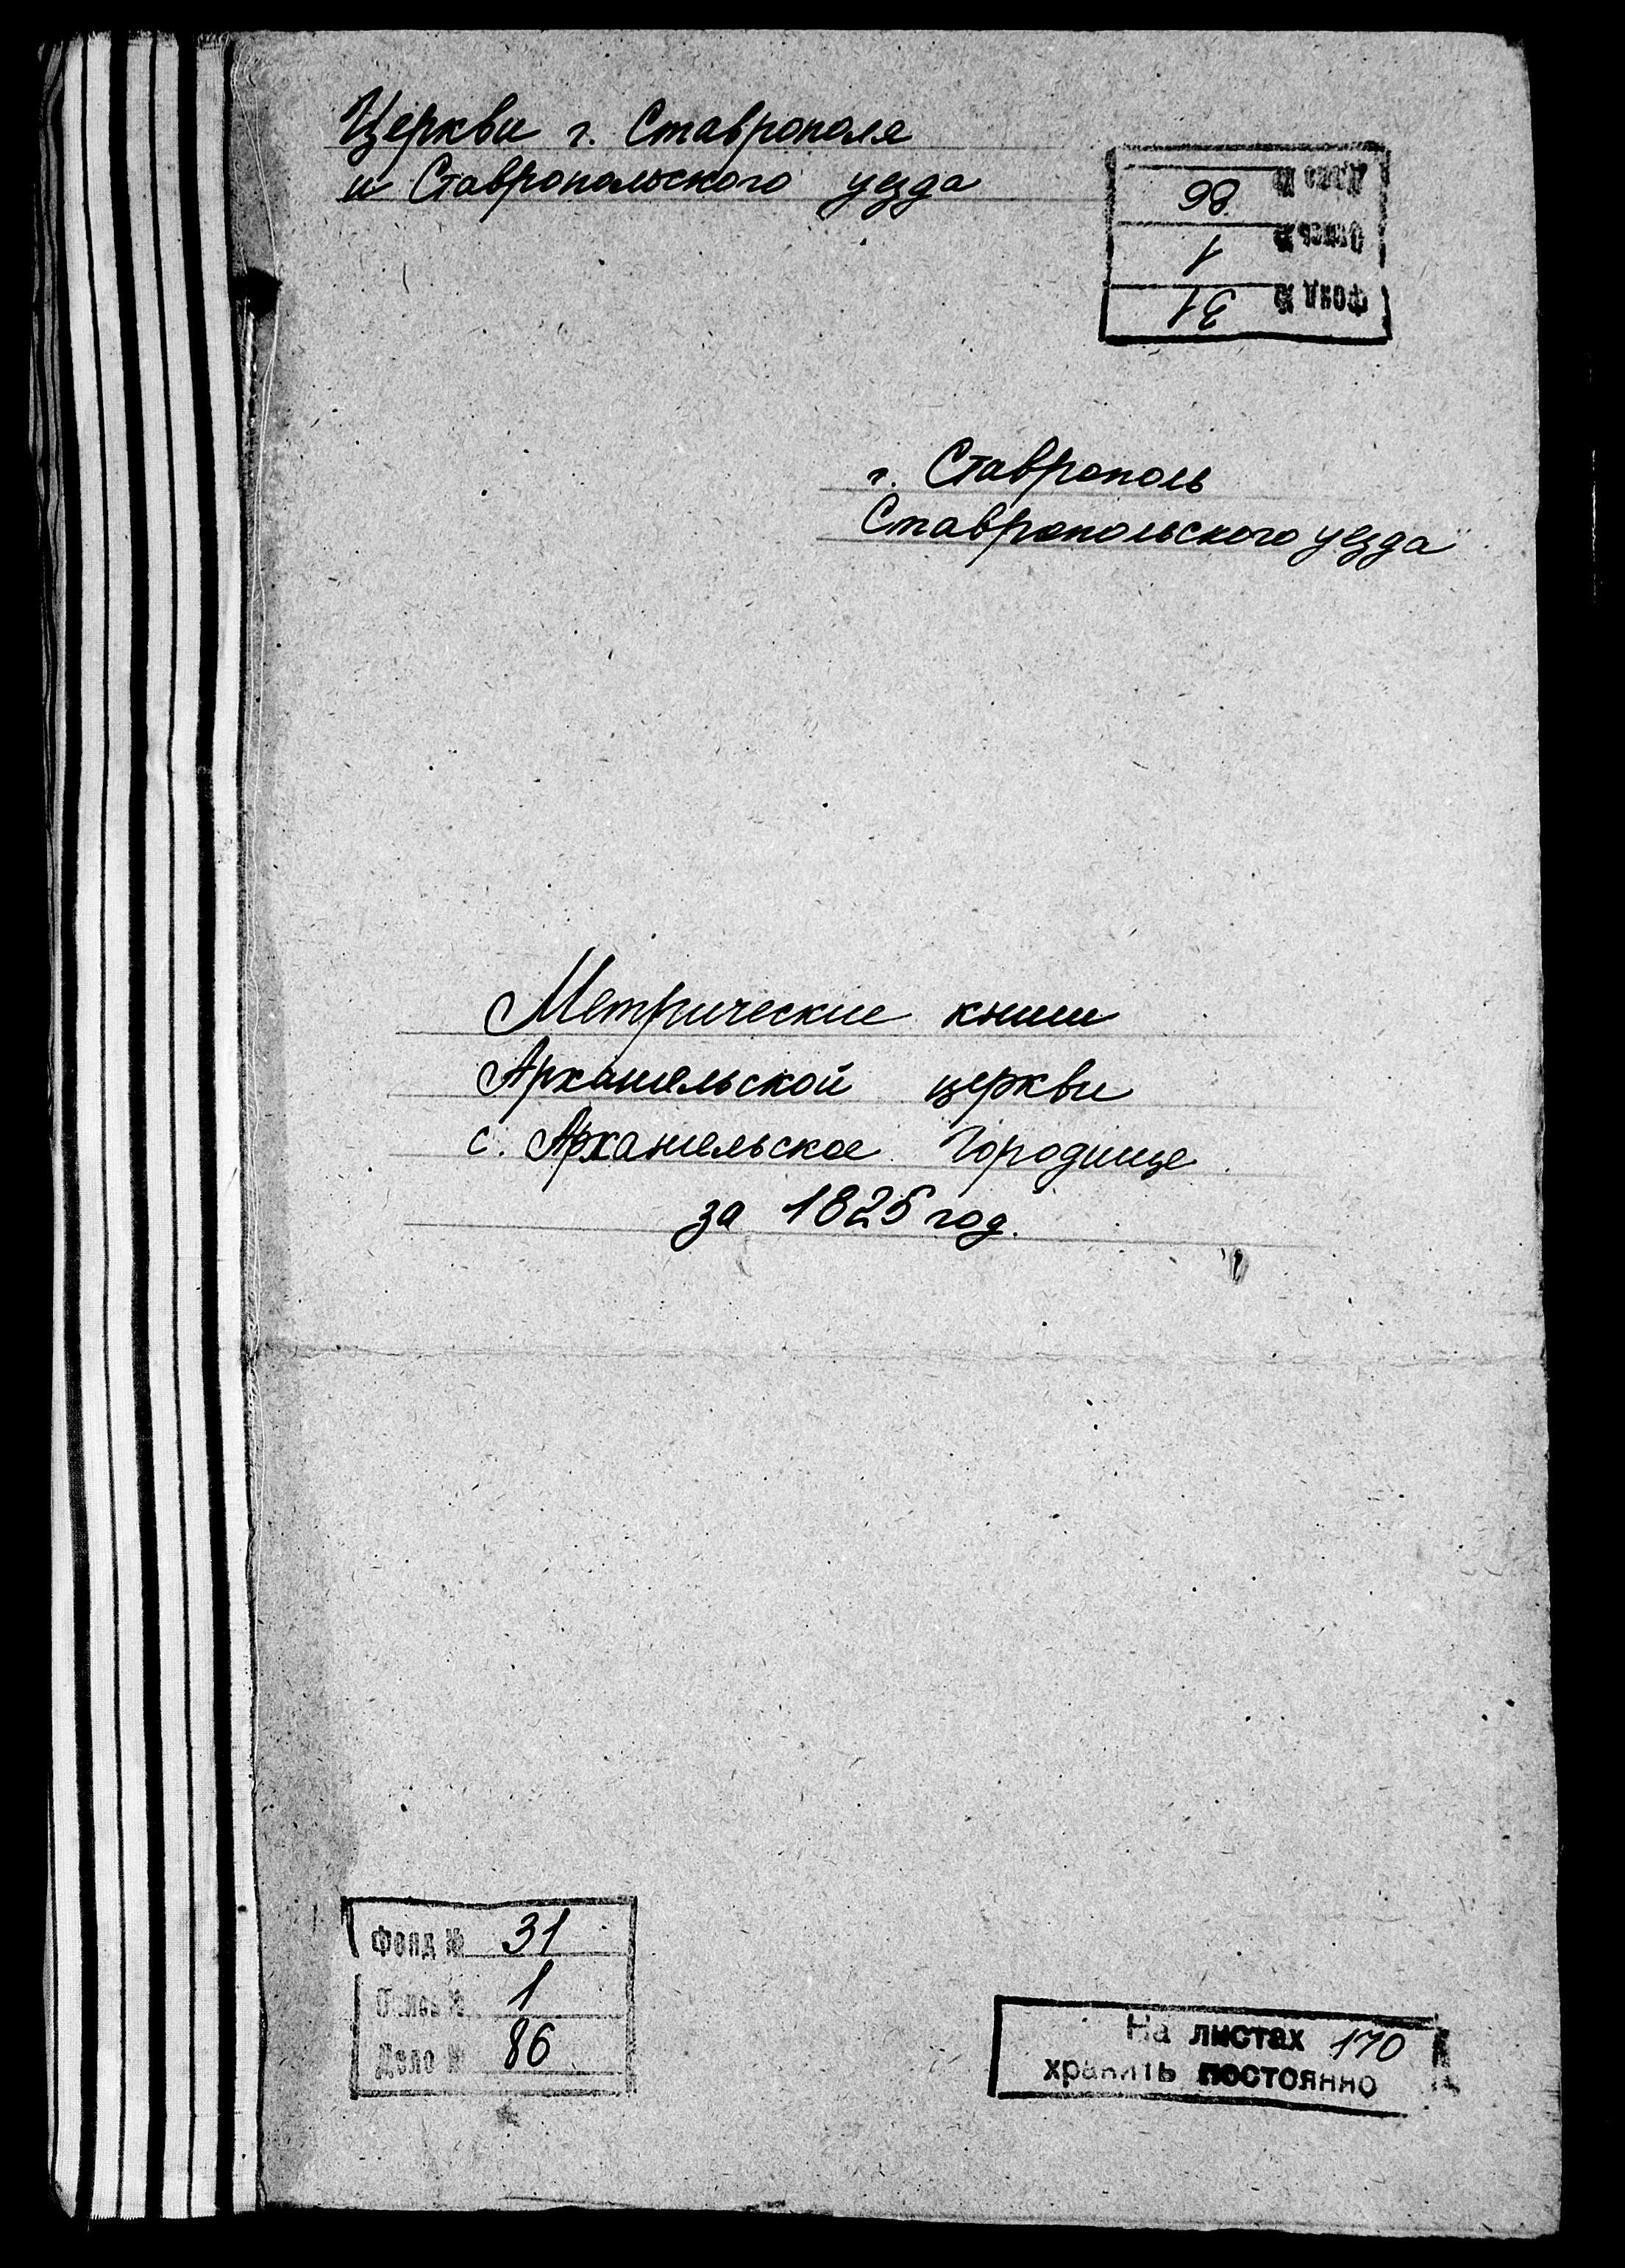 Церкви г. Ставрополя
и Ставропольского уезда
Дело № 86
Опись № 1
Фонд № 31
г. Ставрополь
Ставропольского уезда
Метрические книги
Архангельской церкви
с. Архангельское Городище
за 1825 год.
Фонд № 31
Опись № 1
Дело № 86
На листах 170
хранить постоянно